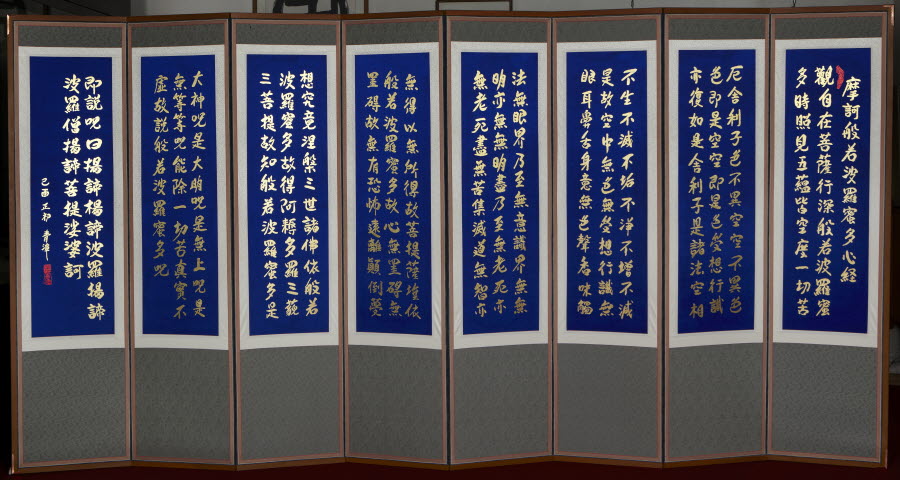 摩訶般若波羅蜜多心經
觀自在菩薩行深般若波羅蜜
多時照見五蘊皆空度一切苦
厄舍利子色不異空空不異色
色即是空空即是色受想行識
亦復如是舍利子是諸法空相
不生不滅不垢不淨不增不減
是故空中無色無受想行識無
眼耳鼻舌身意無色聲香味觸
法無眼界乃至無意識界無無
明亦無無明盡乃至無老死亦
無老死盡無苦集滅道無智亦
無得以無所得故菩提薩埵依
般若波羅蜜多故心無罣礙無
罣礙故無有恐怖遠離顛倒夢
想究竟涅槃三世諸佛依般若
波羅蜜多故得阿耨多羅三藐
三菩提故知般若波羅蜜多是
大神呪是大明呪是無上呪是
無等等呪能除一切苦真實不
虛故說般若波羅蜜多呪
即說呪曰揭諦揭諦波羅揭諦
波羅僧揭諦菩提娑婆訶
己酉 正初